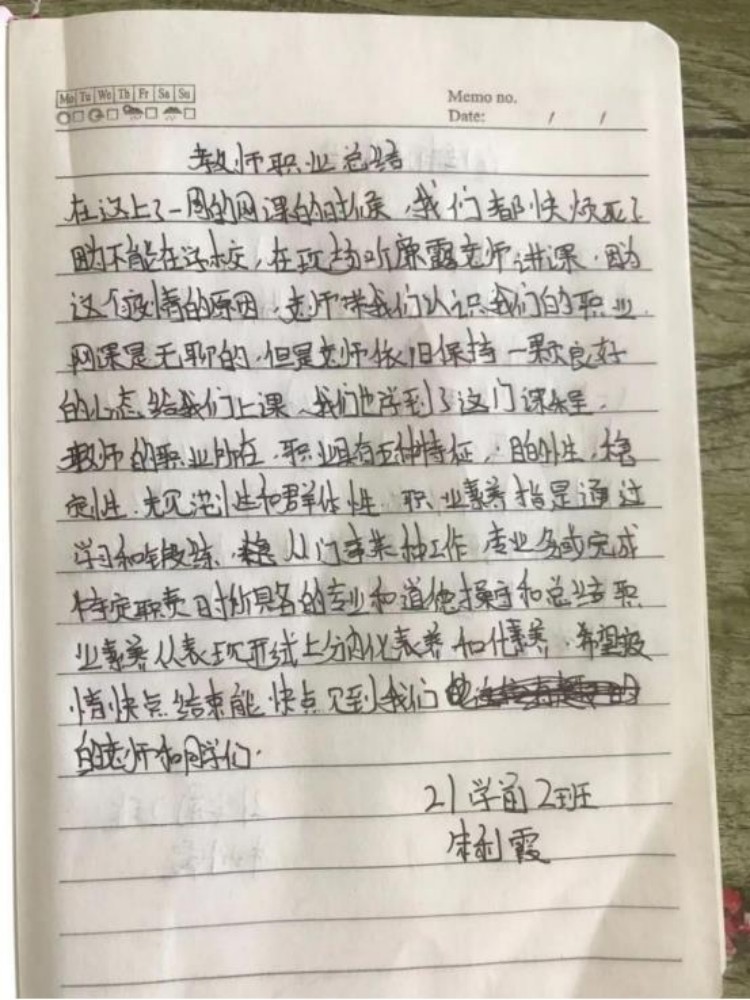 Mo Tu We Th Fr Sa Su
Memo no.
Date: / /
教师职业总结
在这上了一周的网课的时候,我们都快烦死了
因为不能在学校,在现场听廉露老师讲课.因为
这个疫情的原因,老师带我们认识我们的职业.
网课是无聊的,但是老师依旧保持一颗良好
的心态给我们上课、我们也学到了这门课程.
教师的职业所在.职业具有五种特征,:目的性,稳
定性.规范性和群体性 职业素养指是通过
学习和锻练. 从门事某种工作 专业务或完成
特定职责时所具备的专业和道德操守和总结职
业素养从表现形式上分内化素养和化素养.希望疫
情快点结束能快点见到我们
的老师和同学们.
21学前2班
霞